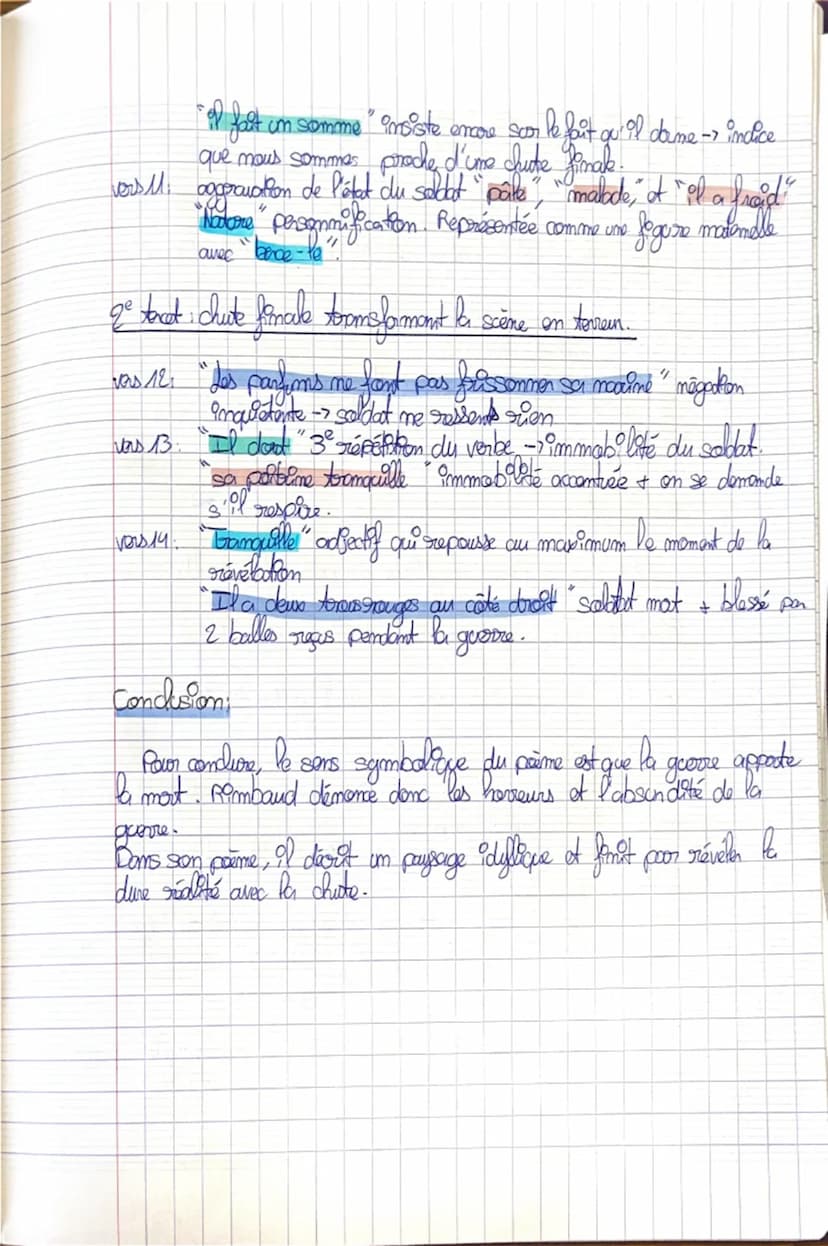 "il fait un somme" insiste encore sur le fait qu'il dorme -> indice
que nous sommes proche d'une chute finale.
vers 11: aggravation de l'état du soldat "pâle", "malade," et "il a froid"
"Nature" personnification. Représentée comme une figure maternelle
avec "berce-le".
2e tercet : chute finale transformant la scène en terreur.
vers 12: "Les parfums ne font pas frissonner sa narine" négation
inquiétante -> soldat ne ressent rien
vers 13: "Il dort" 3e répétition du verbe -> immobilité du soldat.
"sa poitrine tranquille" immobilité accentuée + on se demande
s'il respire.
vers 14: "tranquille" adjectif qui repousse au maximum le moment de la
révélation
"Il a deux trous rouges au côté droit" soldat mort + blessé par
2 balles reçus pendant la guerre.
Conclusion:
Pour conclure, le sens symbolique du poème est que la guerre apporte
la mort. Rimbaud dénonce donc les horreurs et l'absurdité de la
guerre.
Dans son poème, il décrit un paysage idyllique et finit pour révéler la
dure réalité avec la chute.